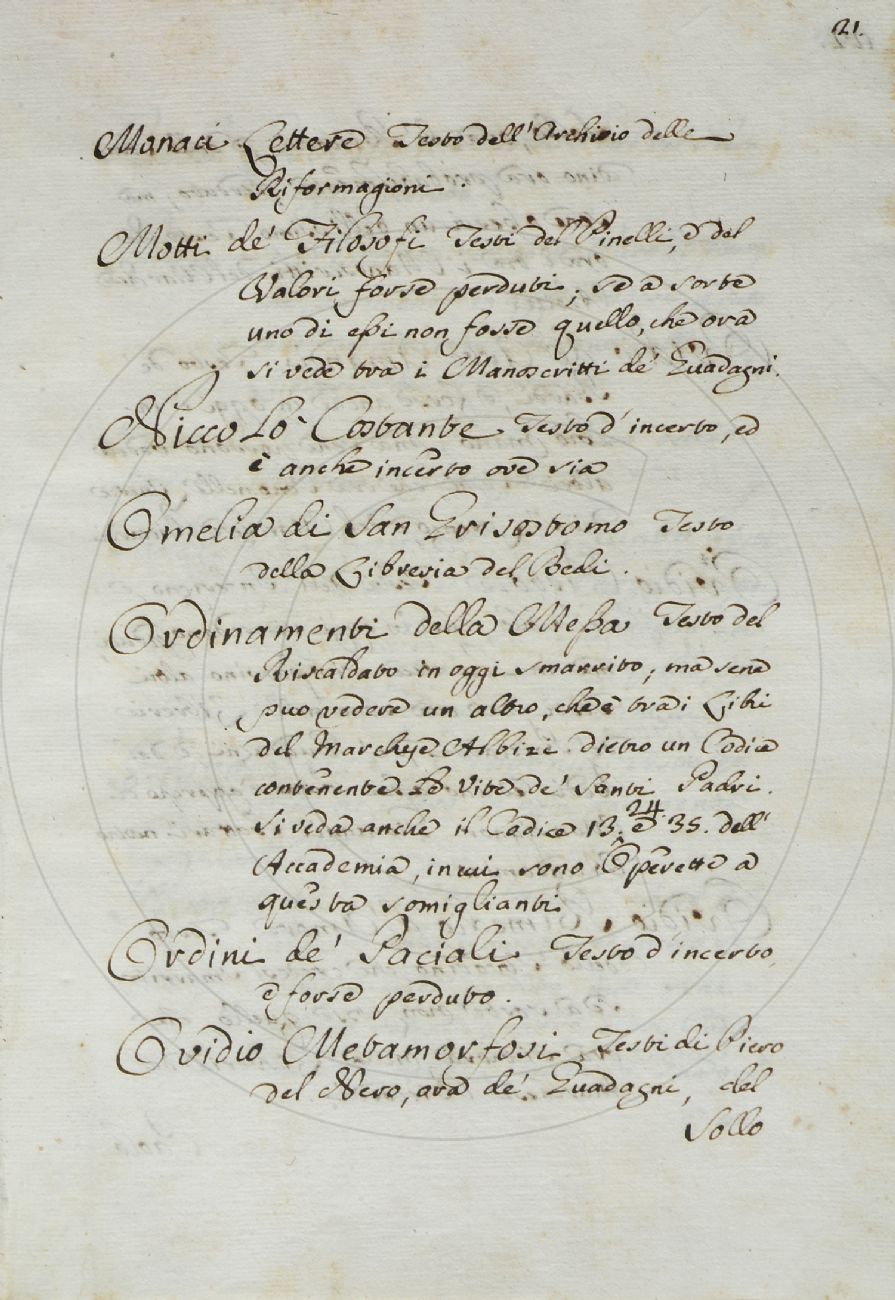 21.
Monaci Lettere Testo dell'Archivio delle
Riformagioni.
Motti de' Filosofi Testi del Pinelli, e del
Valori, forse perduti, se a sorte
uno di essi non fosse quello, che ora
si vede tra i Manoscritti de' Guadagni.
Niccolò Costante Testo d'incerto, ed
è anche incerto ove sia
Omelia di San Grisostomo Testo
della Libreria del Redi.
Ordinamenti della Messa Testo del
Riscaldato in oggi smarrito, ma sene
puo vedere un altro, che è tra i Libri
del Marchese Albizi dietro un Codice
contenente le Vite de' Santi Padri.
Si veda anche il Codice 13. 24 e 35. dell'
Accademia, in cui sono Operette a
questa somiglianti
Ordini de' Paciali Testo d'incerto
e forse perduto.
Ovidio Metamorfosi Testi di Piero
del Nero, ora de' Guadagni, del
Sollo